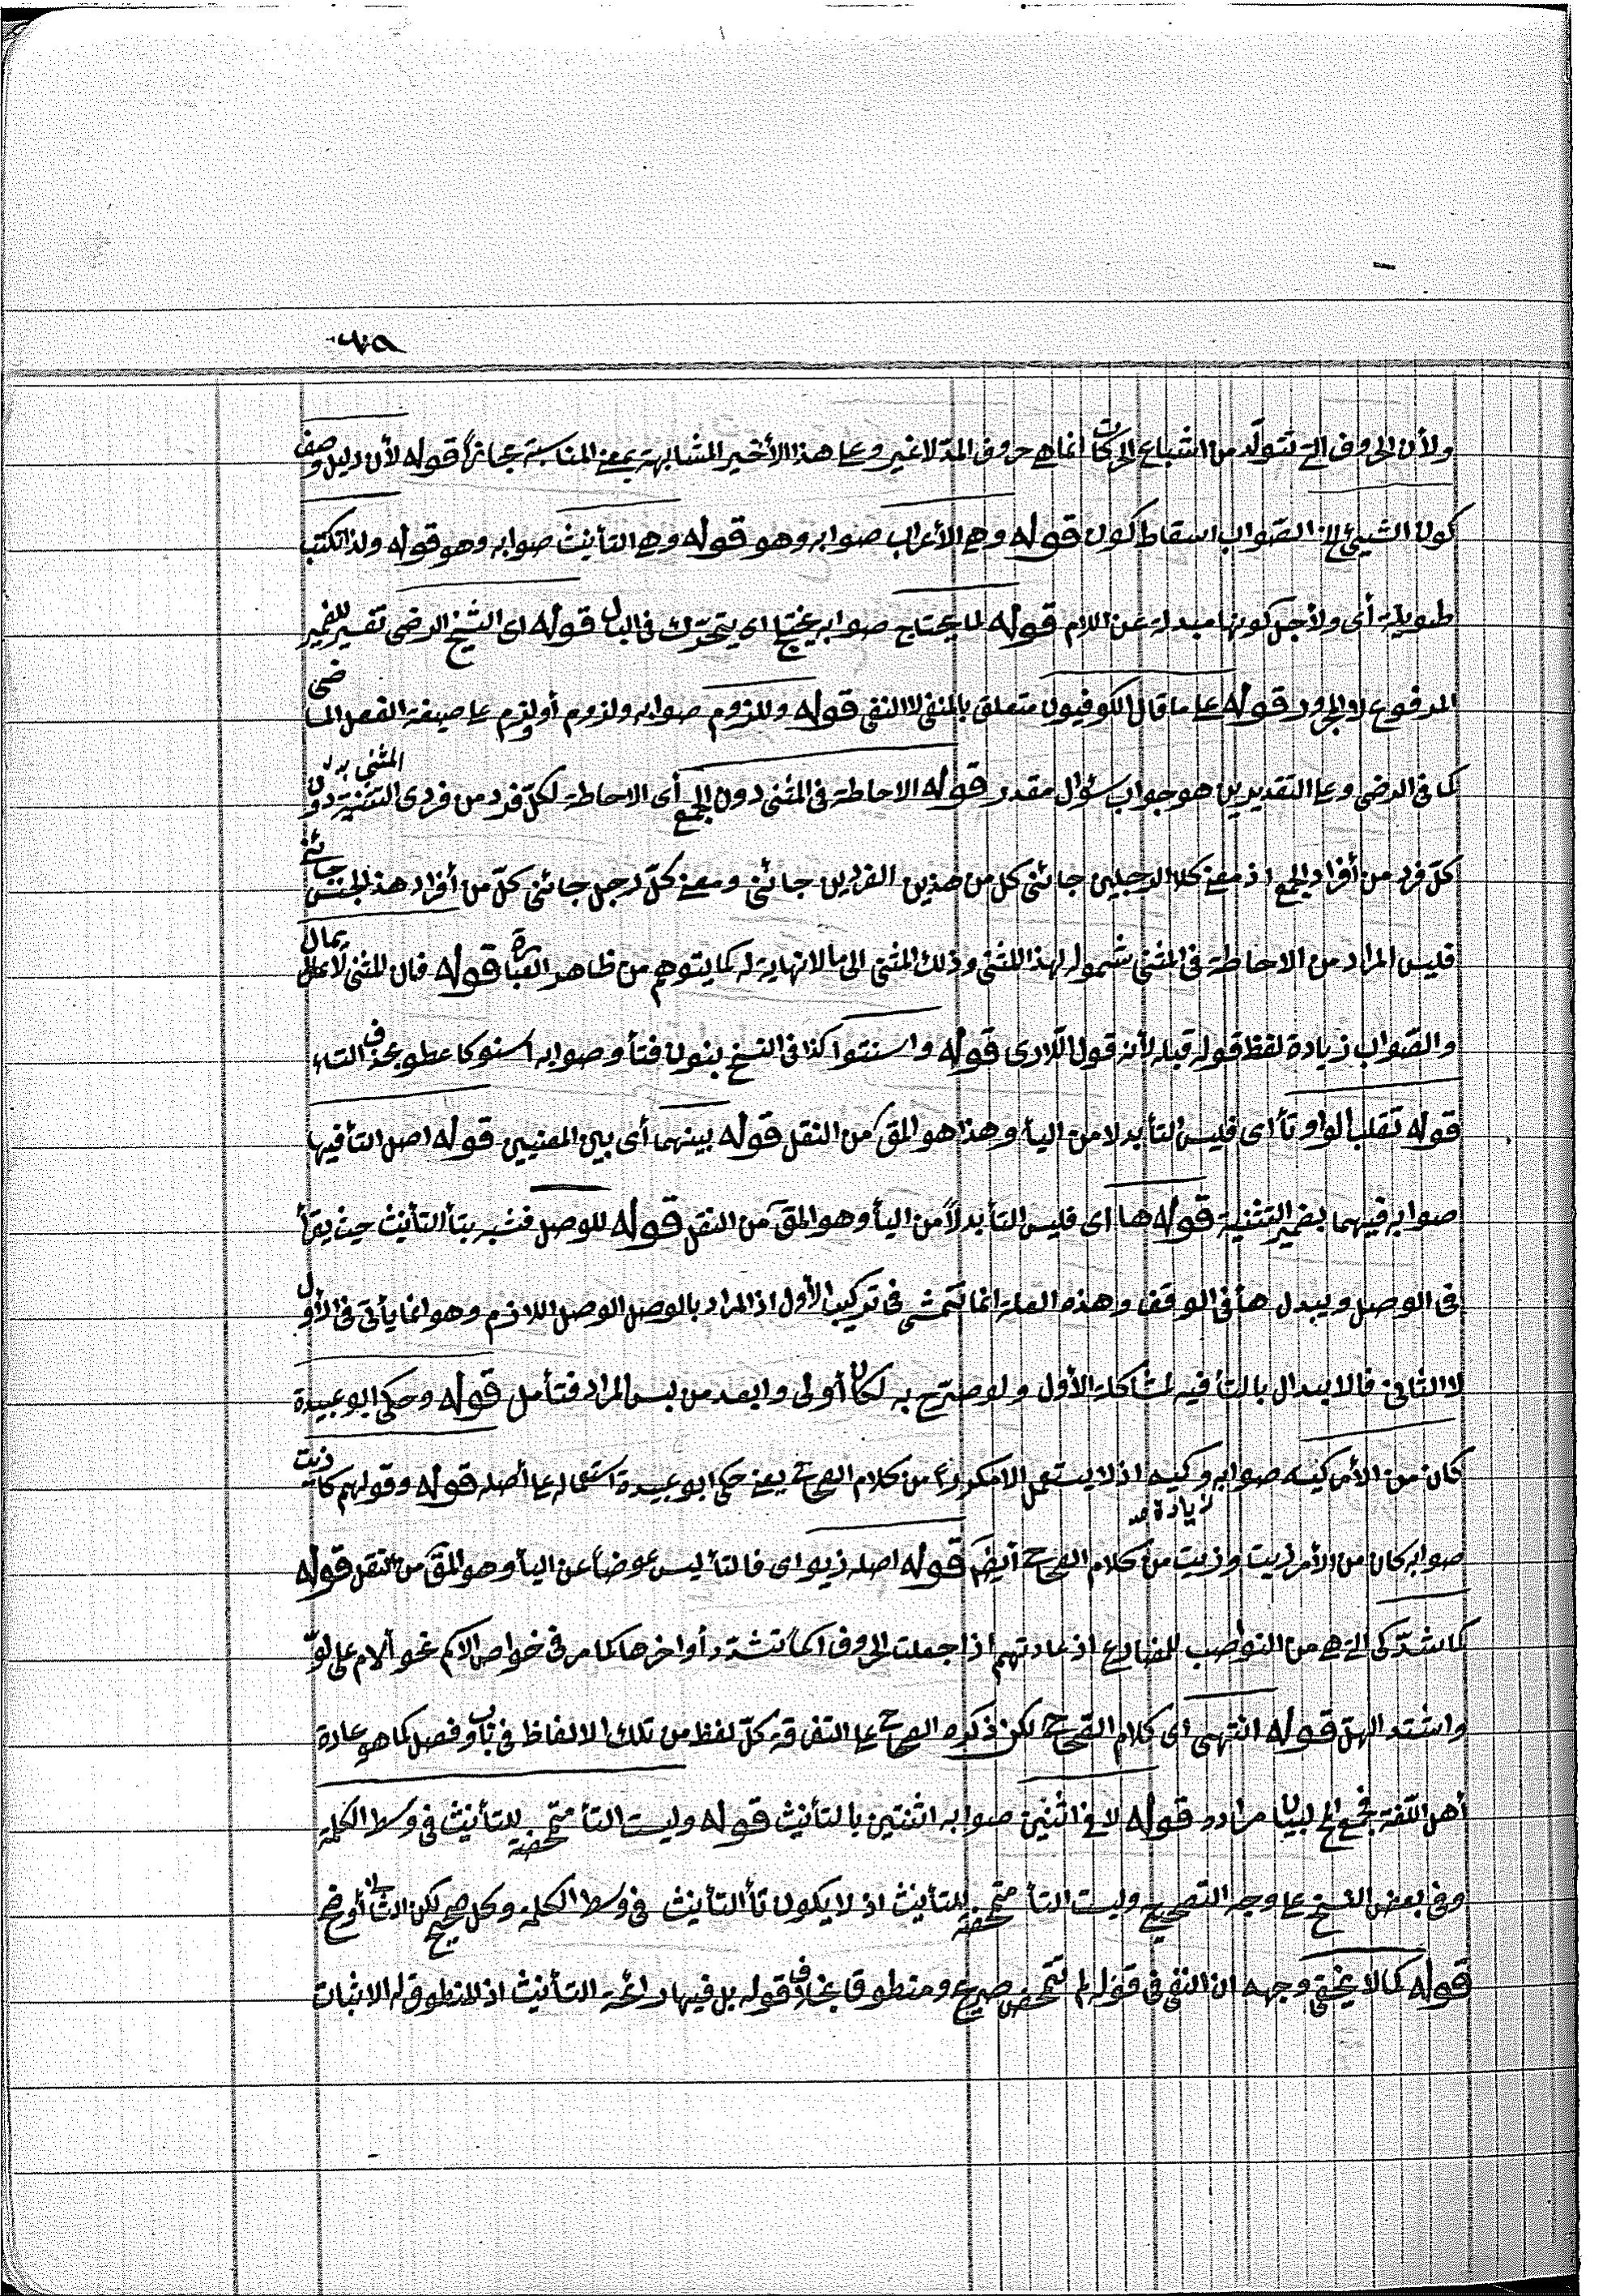 ولأن الحروف التي تتولّد من اشباع الحركات انما هي حروف المدّ لا غير وعلى هذا الأخير المشابهة بمعنى المناسبة مجازاً قوله لأن دليل وصف
كون الشيئ الخ الصّواب اسقاط كون قوله وهي الأعراب صوابه وهو قوله وهي التأنيث صوابه وهو قوله ولذا تكتب
طويلة أى ولأجل كونها مبدلة عن اللام قوله لما يحتاج صوابه يختلج اى يتحرّك فى البال قوله اى الشيخ الرضى تفسير للضمير
المرفوع لا المجرور قوله على ما قال الكوفيون متعلق بالمنفى لا النفى قوله وللزوم صوابه ولزوم أو لزم على صيغة الفعل الماضى
كما فى الرضى وعلى التقديرين هو جواب سؤال مقدر قوله الاحاطة فى المثنى دون الجمع أى الاحاطة لكلّ فرد من فردى التثنية دون
المثنى بدل
كلّ فرد من أفراد الجمع اذ معنى كلا الرجلين جائنى كل من هذين الفردين جائنى ومعنى كلّ رجل جائنى كلّ من أفراد هذ الجنس جائنى
فليس المراد من الاحاطة فى المثنى شموله لهذ المثنى وذلك المثنى الى ما لا نهاية له كما يتوهم من ظاهر العبارة قوله فمال للمثنى لا
والصّواب زيادة لفظ قوله قبله لأنه قول اللارى قوله واسنتوا كذا فى النسخ بنون فتأ وصوابه اسنو كاعطو بحذف التاء
قوله تقلب الواو تأ أى فليس التأ بدلا من اليأ وهذا هو المقَ من النقل قوله بينهما أى بين المعنيين قوله اصل التأ فيها
صوابه فيهما بضمير التثنية قوله ها اى فليس التأ بدلاً من اليأ وهو المقَ من النقل قوله للوصل فشبه بتأ التأنيث حيث يقرأ
فى الوصل ويبدل هأ فى الوقف وهذه العلة انما تتمشى فى تركيب الأول اذ المراد بالوصل الوصل اللازم وهو انما يأتى فى الأول
لا الثانى فالابدال بالتأ فيه لمشاكلة الأول ولو صرّح به لكان أولى وابعد من لبس المراد فتأمل قوله وحكى ابو عبيدة
كان من الأمر كيه صوابه وكيه اذ لا يستعمل الا مكرراً من كلام الصحاح يعنى حكى ابو عبيدة استعماله على أصله قوله وقولهم كان ذيت
زيادة مـ
صوابه كان من الأمر ذيت وذيت من كلام الصحاح أيضَم قوله اصله ذيو اى فالتأ ليس عوضاً عن اليأ وهو المقَ من النقل قوله
كما شدّ كى التى هى من النواصب للمضارع اذ عادتهم اذا جعلت الحروف اسمأ تشدد أواخرها كما مر فى خواص الاسم نحو ألام على لوّ
واشتد الهلّ قوله انتهى اى كلام الصحاح لكن ذكره الصحاح على التفرقة كلّ لفظ من تلك الالفاظ فى باب وفصل كما هو عادة
أهل اللّغة فجمع الخ لبيان مراده قوله لا فى اثنين صوابه اثنتين بالتأنيث قوله وليست التأ متمحضة للتأنيث فى وسط الكلمة
وفى بعض النسخ على وجه التصحيح وليست التأ متمحضة للتأنيث اذ لا يكون تأ التأنيث فى وسط الكلمة وكل صحيح لكن الثانى أوضح
قوله كما لا يخفى وجهه ان النفى فى قوله لم تتمحض صريح ومنطوق بخلاف قوله بل فيها رائحة التأنيث اذ المنطوق له الاثبات